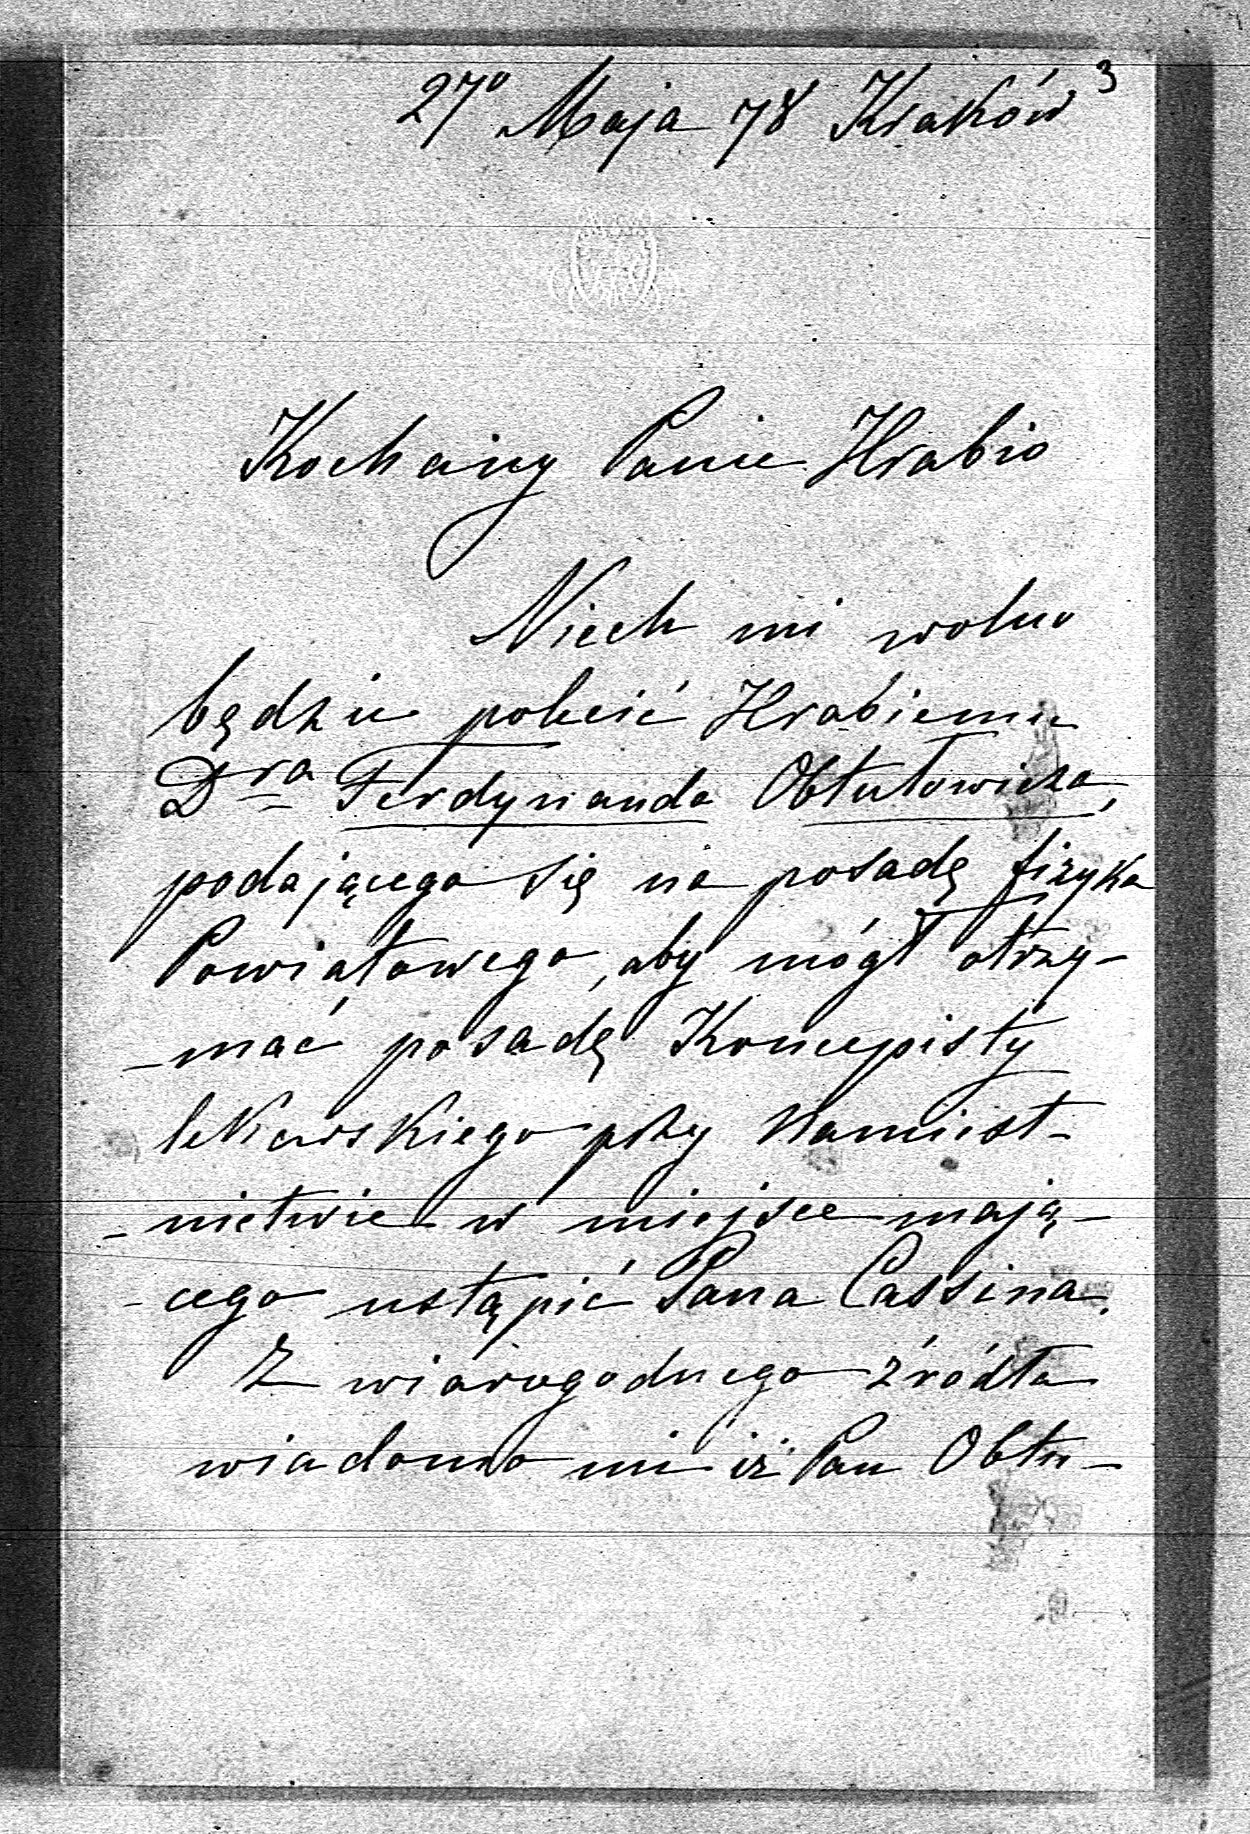 3
27º Maja 78 Kraków
Kochany Panie Hrabio
Niech mi wolno
będzie polecić Hrabiemu
Dra Ferdynanda Obtułowicza,
podającego się na posadę fizyka
Powiatowego, aby mógł otrzy-
-mać posadę Koncepisty
lekarskiego przy Namiest-
-nictwie w miejsce mają-
-cego ustąpić Pana Cassina.
Z wiarogodnego źródła
wiadomo mi iż Pan Obtu-